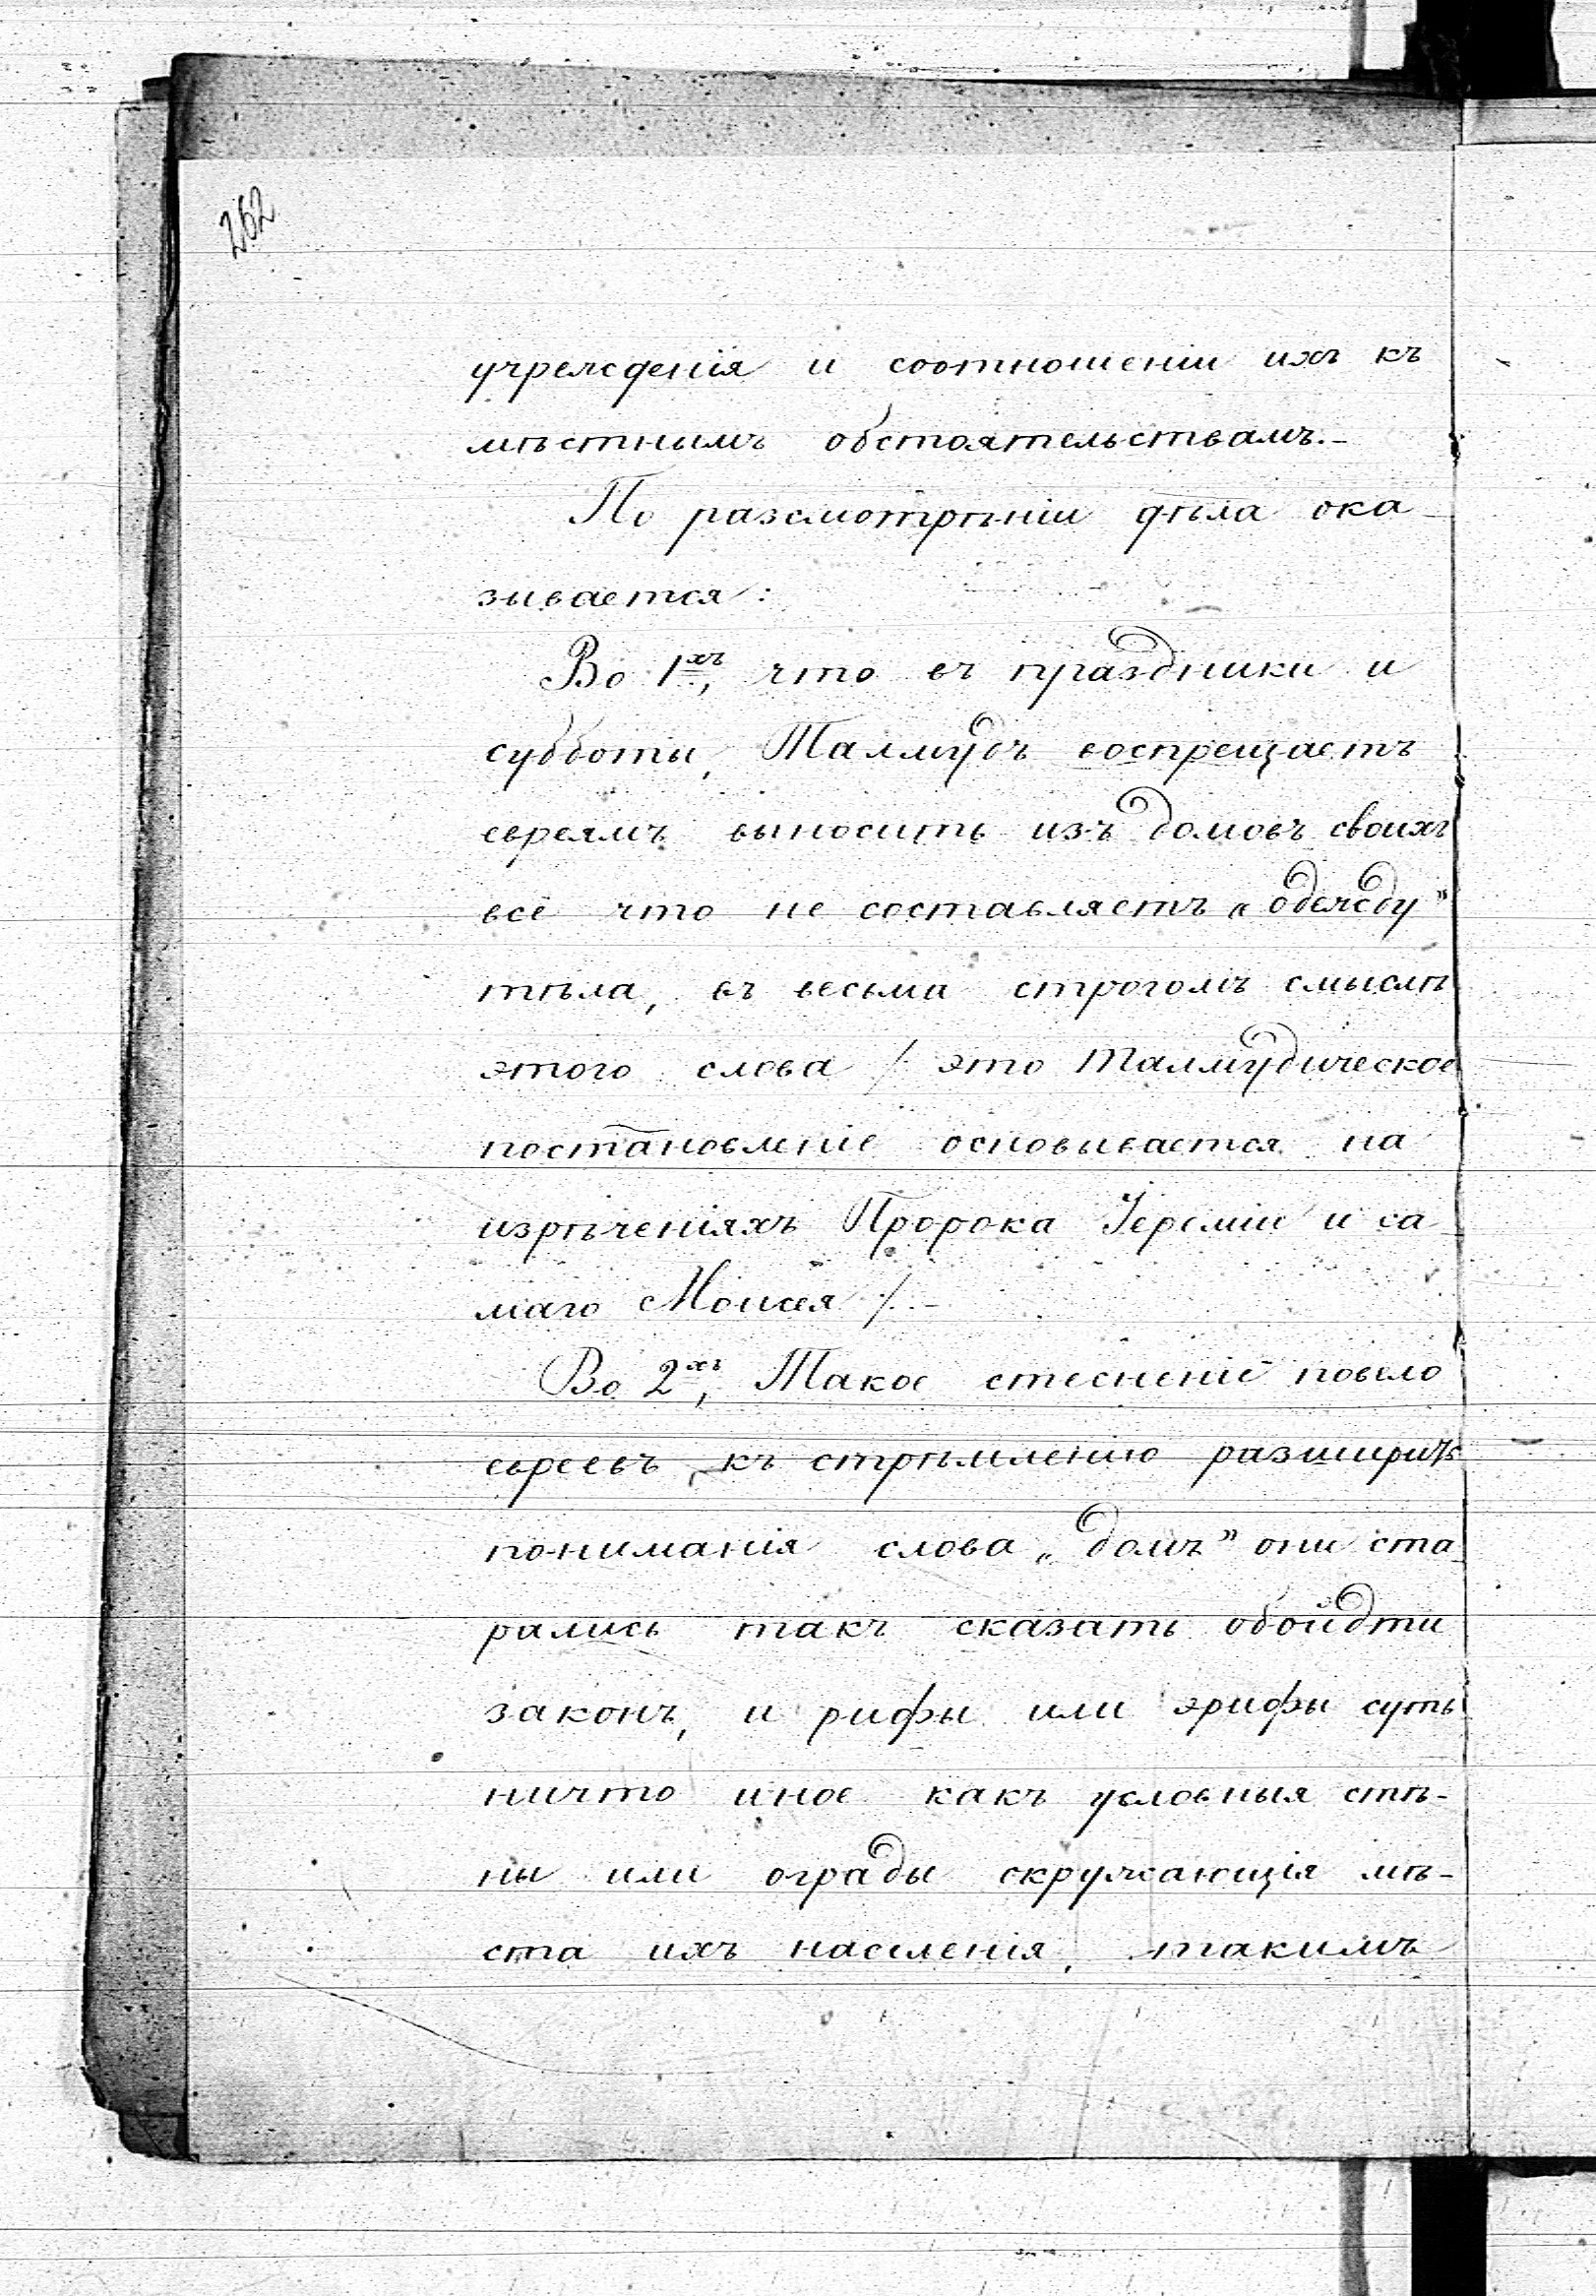 262
учрежденія и соотношеніи ихъ къ
мѣстнымъ обстоятельствамъ.-
По разсмотрѣніи дѣла ока-
зывается:
Во 1хъ, что въ праздники и
субботы, Талмудъ воспрещаетъ
евреямъ выносить изъ домовъ своихъ
всё что не составляетъ „одежду"
тѣла, въ весьма строгомъ смыслѣ
этого слова /: это Талмудическое
постановленіе основывается на
изрѣченіяхъ Пророка Іереміи и са-
маго Моисея /.-
Во 2хъ, Такое стесненіе повело
евреевъ, къ стрѣмленію разширить
пониманія слова „домъ" они ста-
рались такъ сказать обойдти
законъ, и рифы или эрифы суть
ничто иное какъ условныя стѣ-
ны или ограды окружающія мѣ-
ста ихъ населенія, такимъ